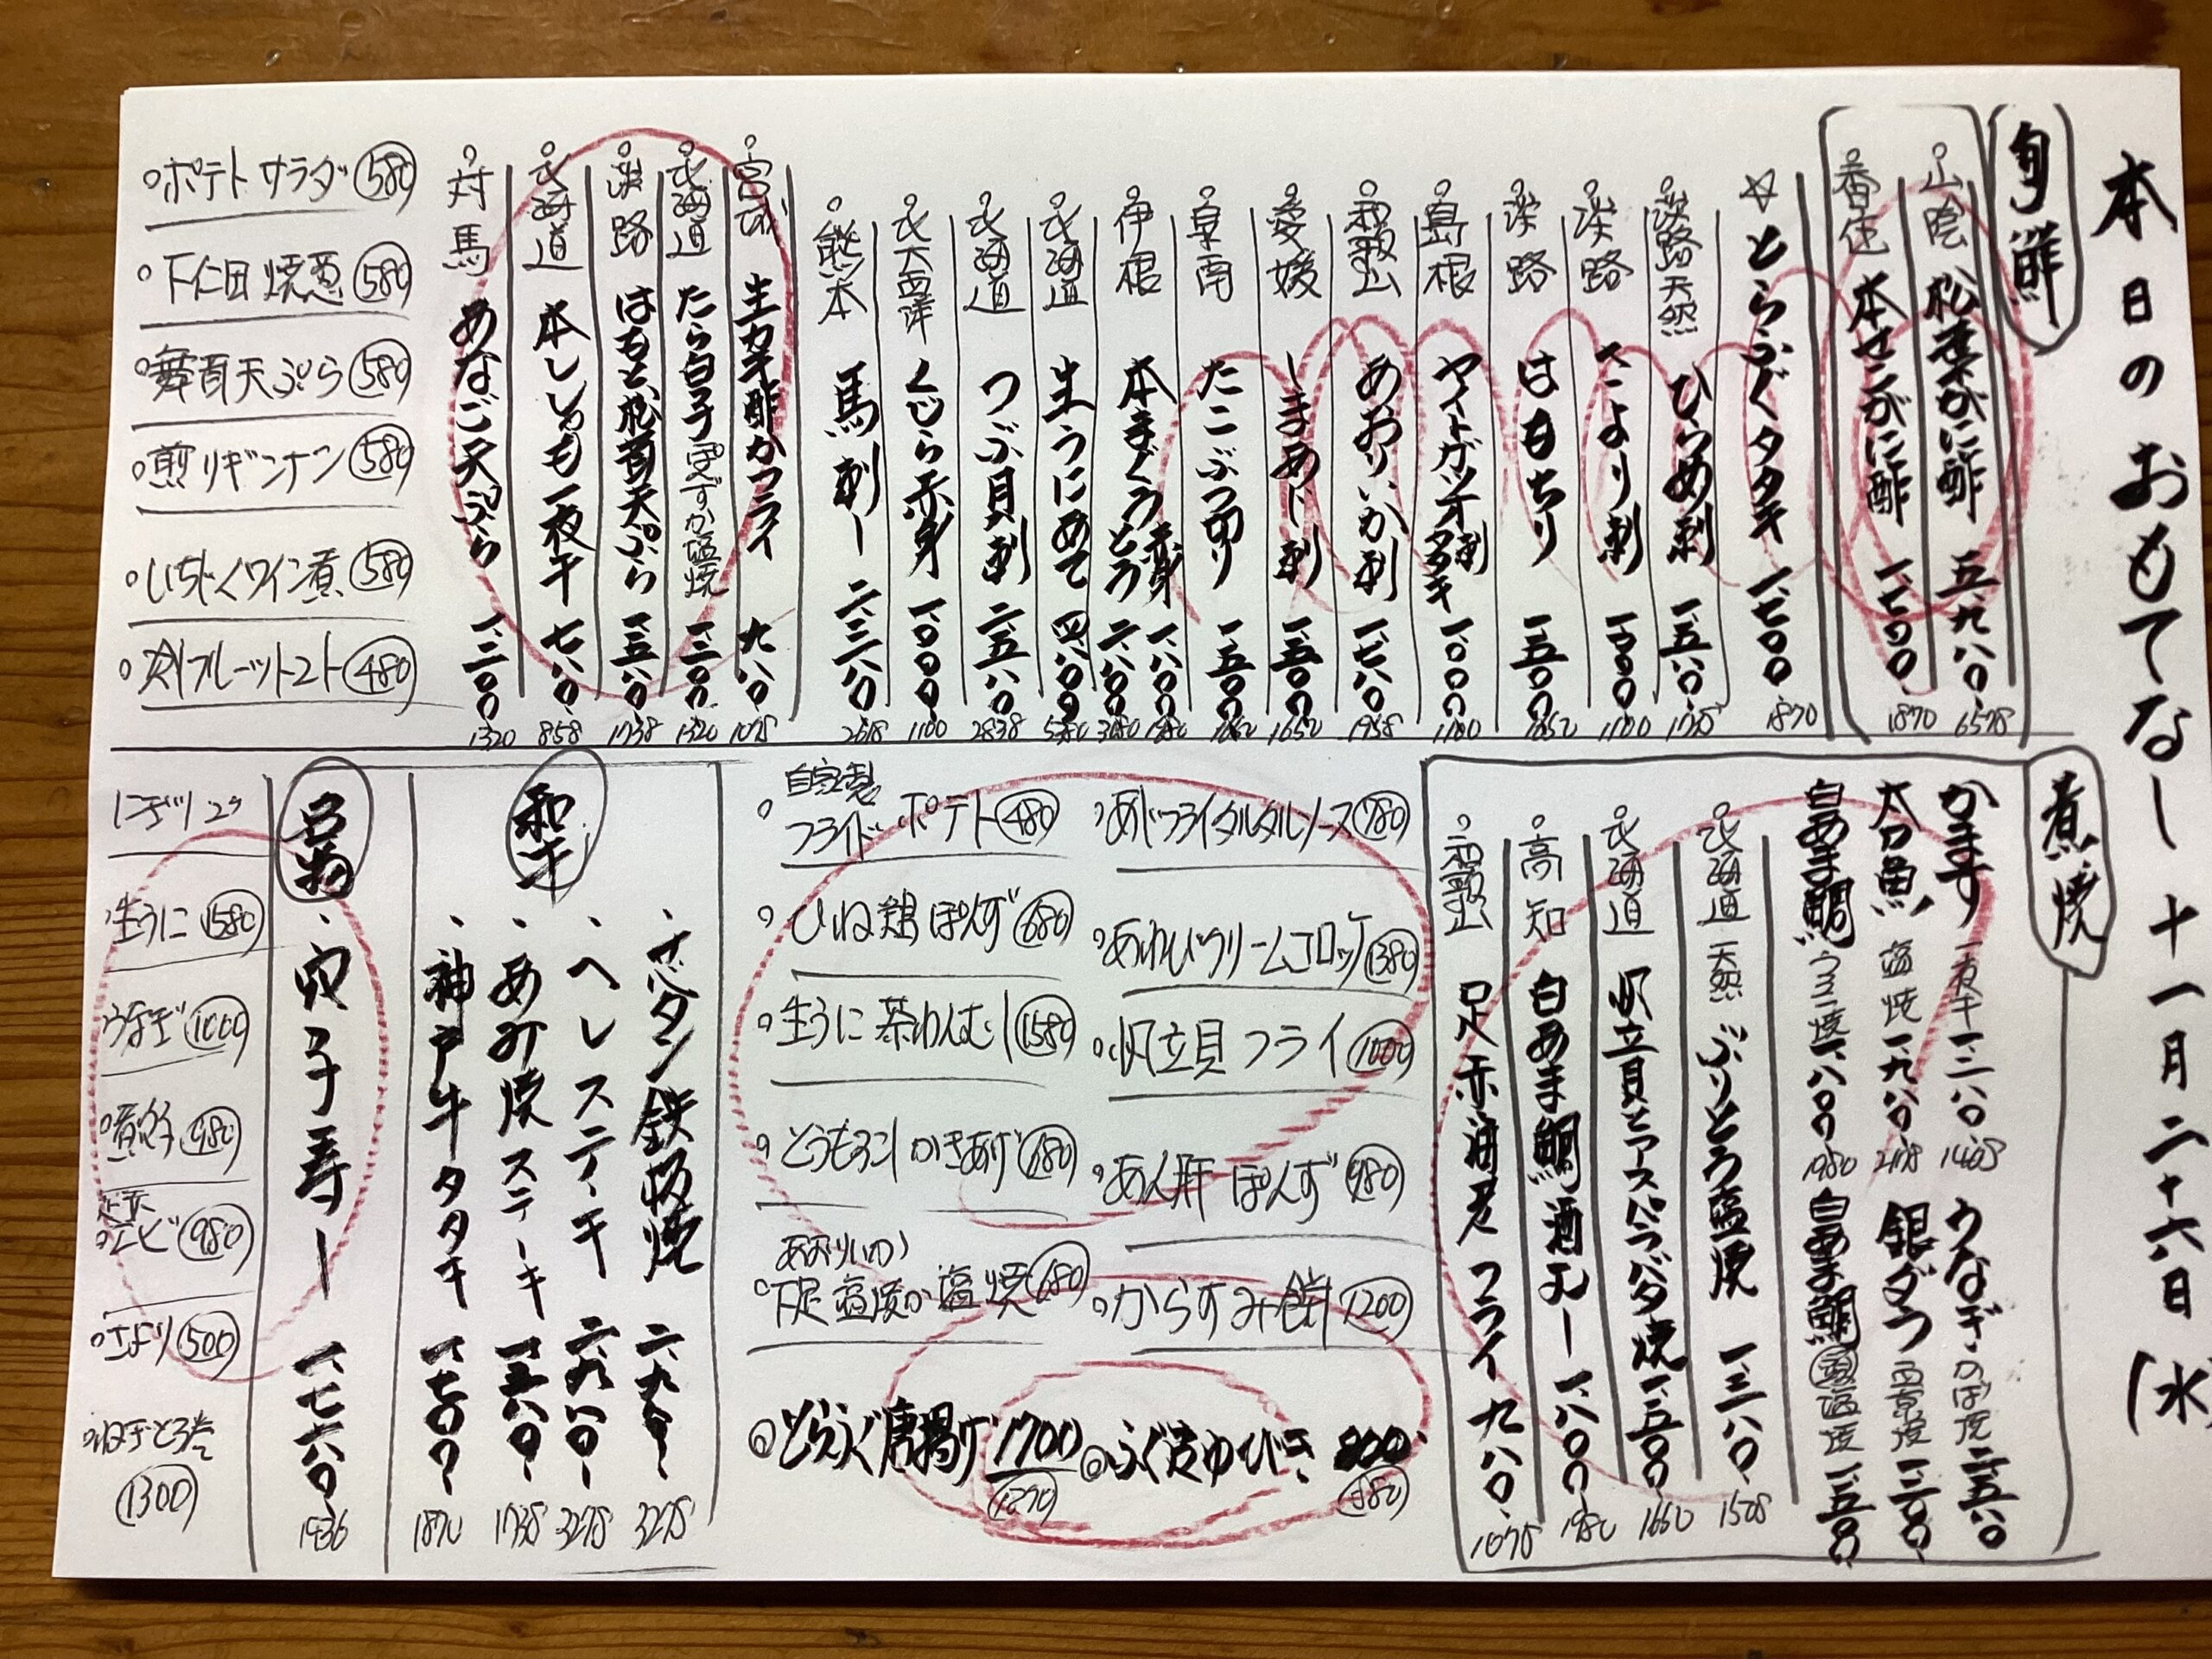 本日のおもてなし 十一月二十六日(水
旬鮮
山陰 松葉がに酢 五、九八〇、 6578
香住 本せこがに酢 一、七〇〇、 1870
☆とらふぐタタキ 一、七〇〇、 1870
淡路天然 ひらめ刺 一、五八〇、
淡路 さより刺 一、〇〇〇、 1100
淡路 はもちり 一、五〇〇
島根 ヤイトガツオ刺 タタキ 一、〇〇〇 1100
和歌山 あおりいか刺 一、七八〇 1958
愛媛 しまあじ刺 一、五〇〇 1650
たこぶつ切り 一、五〇〇
伊根 本まぐろ 赤身 一、八〇〇 とろ 二、八〇〇
北海道 生うにめて
北海道 つぶ貝刺 二、五八〇 2838
北大西洋 くじら赤身 一、〇〇〇 1100
熊本 馬刺し 二、三八〇 2618
宮城 生カキ酢かフライ 九八〇 1078
北海道 たら白子 ぽんずか塩焼 一、二〇〇、 1320
淡路 はもと松茸天ぷら 一、五八〇 1738
北海道 本ししゃも一夜干 七八〇、 858
対馬 あなご天ぷら 一、二〇〇 1320
ポテトサラダ 580
下仁田焼葱 580
舞茸天ぷら 580
煎りギンナン 580
いちじくワイン煮 580
フルーツトマト 480
煮焼
かます 一夜干 一、二八〇 1408 うなぎ かば焼 二、五八〇
太刀魚 塩焼 一、九八〇、 2178 銀ダラ 西京焼 一、二〇〇、
白あま鯛 ウロコ焼 一、八〇〇、 1980 白あま鯛 塩焼 一、五〇〇
北海道 天然 ぶりとろ塩焼 一、三八〇、 1508
北海道 帆立貝とアスパラバター焼 一、五〇〇 1660
高知 白あま鯛酒むし 一、八〇〇、 1980
和歌山 足赤海老フライ 九八〇、 1078
あじフライタルタルソース 780
あわびクリームコロッケ 1380
帆立貝フライ 1000
あん肝ぽんず 980
からすみ餅 1200
自家製 フライドポテト 480
ひね鶏ぽんず 680
生うに茶わんむし 1580
とうもろこしかきあげ 680
あおりいか 下足 塩焼 680
とらふぐ唐揚げ 1700
ふぐ皮ゆびき 800
和牛
タン鉄板焼 3278
ヘレステーキ 二、九八〇 3278
あみ焼ステーキ 一、五八〇 1738
神戸牛タタキ 一、七〇〇、 1870
穴子寿し 一、七六〇 1936
にぎり 2ヶ
生うに 1580
うなぎ 1000
エビ 980
さより 500
ねぎとろ巻 1300